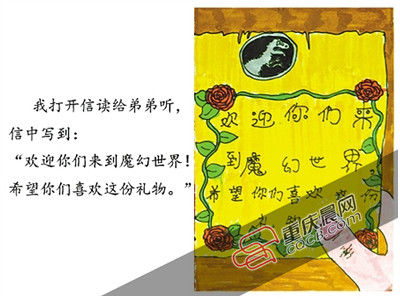 我打开信读给弟弟听，
信中写到：
“欢迎你们来到魔幻世界！
希望你们喜欢这份礼物。”
欢迎你们来
到魔幻世界
希望你们喜欢这份
重庆晨网
CQCB.com